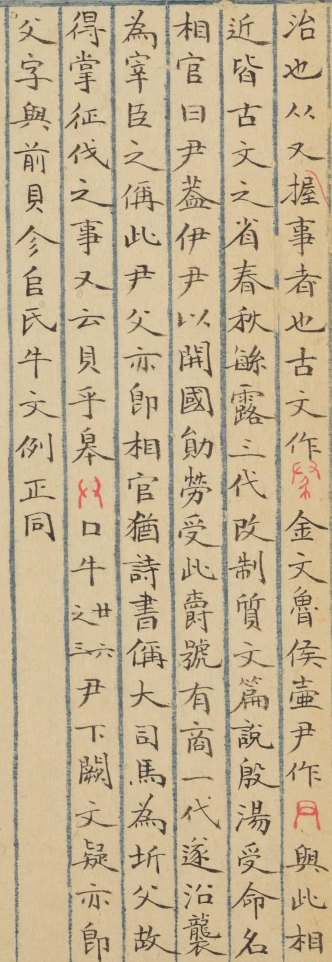 治也从又握事者也古文作金文魯侯壷尹作與此相
近皆古文之省春秋緐露三代改制質文篇說殷湯受命名
相官曰尹蓋伊尹以開國勛勞受此爵號有商一代遂沿襲
為宰臣之偁此尹父亦即相官猶詩書偁大司馬為圻父故
得掌征伐之事又云貝乎皋口牛廿六之三尹下闕文疑亦即
父字與前貝㐱𠂤氏牛文例正同